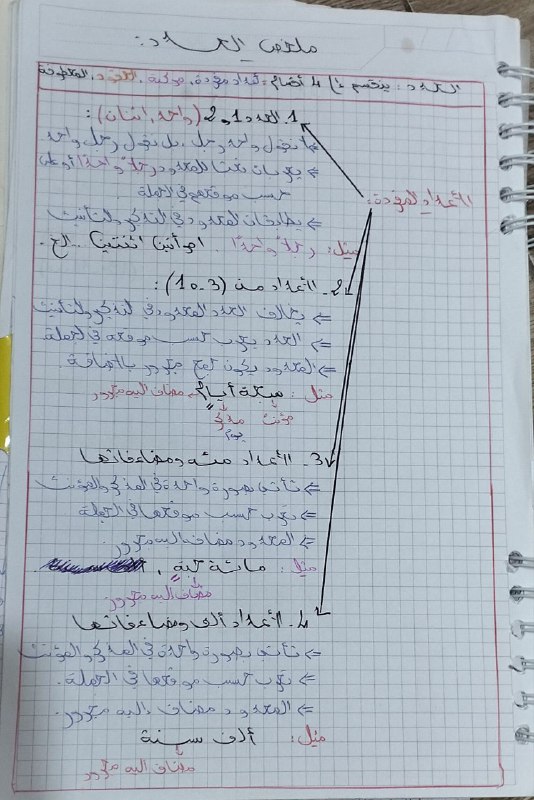 ملخص العدد:
العدد: ينقسم إلى 4 أقسام: أعداد مفردة، مركبة، العقود، المعطوفة
الأعداد المفردة:
1. العدد 1 و 2 (واحد، اثنان):
لا نقول واحد رجل بل نقول رجل واحد
⇐ يعربان نعتا للمعدود رجلا واحدا أو على
حسب موقعهم في الجملة
⇐ يطابقان المعدود في التذكير والتأنيث
مثل: رجلا واحدًا. امرأتين اثنتين ... الخ.
2. الأعداد من (3-10):
⇐ يخالف العدد المعدود في التذكير والتأنيث
⇐ العدد يعرب حسب موقعه في الجملة
⇐ المعدود يكون جمع مجرور بالإضافة.
مثل: سبعة أيامٍ ← مضاف إليه مجرور
مؤنث مذكر
يوم
3. الأعداد مئة ومضاعفاتها
⇐ تأتي بصورة واحدة في المذكر والمؤنث
⇐ تعرب حسب موقعها في الجملة
⇐ المعدود مضاف إليه مجرور.
مثل: مائة
مضاف إليه مجرور
4. الأعداد ألف ومضاعفاتها
⇐ تأتي بصورة واحدة في المذكر والمؤنث
⇐ تعرب حسب موقعها في الجملة.
⇐ المعدود مضاف إليه مجرور.
مثل: ألف سنة
مضاف إليه مجرور